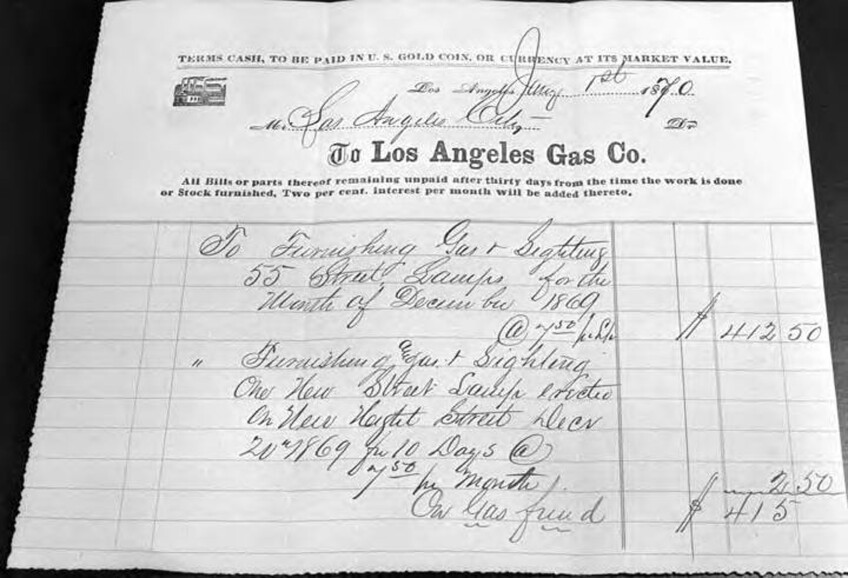 TERMS CASH, TO BE PAID IN U. S. GOLD COIN, OR CURRENCY AT ITS MARKET VALUE.
Los Angeles, Jany 1st 1870
M. Los Angeles City Dr.
To Los Angeles Gas Co.
All Bills or parts thereof remaining unpaid after thirty days from the time the work is done
or Stock furnished, Two per cent. interest per month will be added thereto.
To Furnishing Gas & Lighting
55 Street Lamps for the
Month of December 1869
@ 7.50 pr $ 412 50
" Furnishing Gas & Lighting
One New Street Lamp erected
on New Street Decr
20th 1869 for 10 Days @
7.50 pr Month 2.50
On Gas fund $ 415